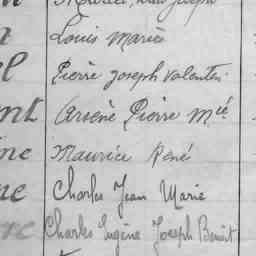 Joseph
n Louis Mariè
el Pierre Joseph Valentin
nt Arsenè Pierre Mié
ine Maurice René
ne Charles Jean Marie
rc Charles Eugène Joseph Benoit